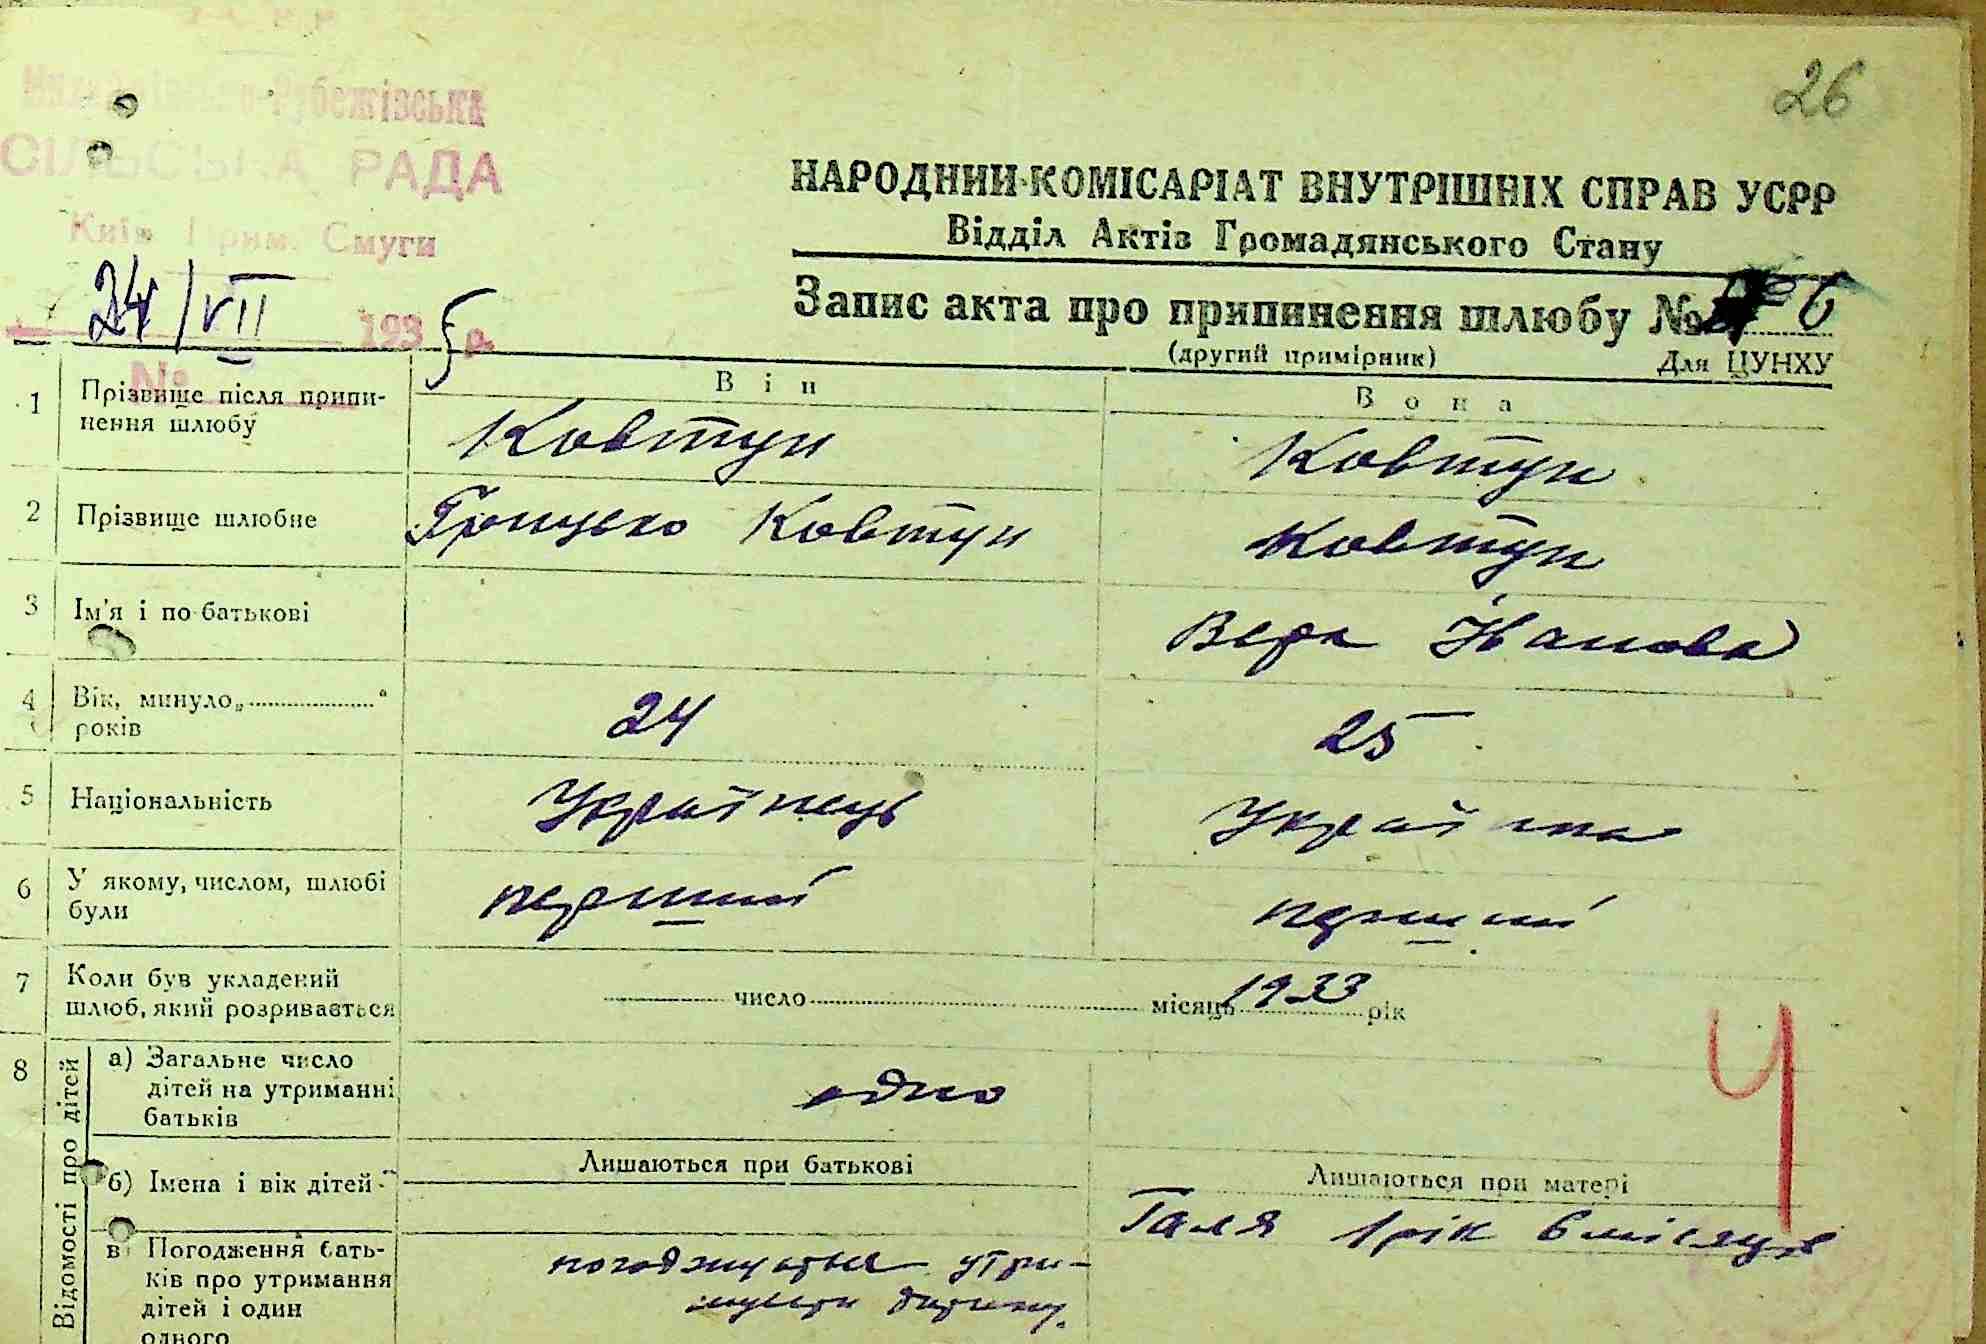 26
Михайлівсько-Рубежівська
СІЛЬСЬКА РАДА
Київ Прим. Смуги
24/VII 1935 р.
№
НАРОДНИЙ КОМІСАРІАТ ВНУТРІШНІХ СПРАВ УСРР
Відділ Актів Громадянського Стану
Запис акта про припинення шлюбу № 6
(другий примірник) Для ЦУНХУ
Він Вона
1 Прізвище після припинення шлюбу Ковтун Ковтун
2 Прізвище шлюбне Грицько Ковтун Ковтун
3 Ім'я і по батькові Вера Іванова
4 Вік, минуло „ " років 24 25
5 Національність Українець Українка
6 У якому, числом, шлюбі були перший перший
7 Коли був укладений шлюб, який розривається число місяць 1933 рік
8 Відомості про дітей
а) Загальне число дітей на утриманні батьків одно
Лишаються при батькові Лишаються при матері
б) Імена і вік дітей Галя 1 рік 6 місяців
в) Погодження батьків про утримання дітей і один одного
утримувати дитину.
4